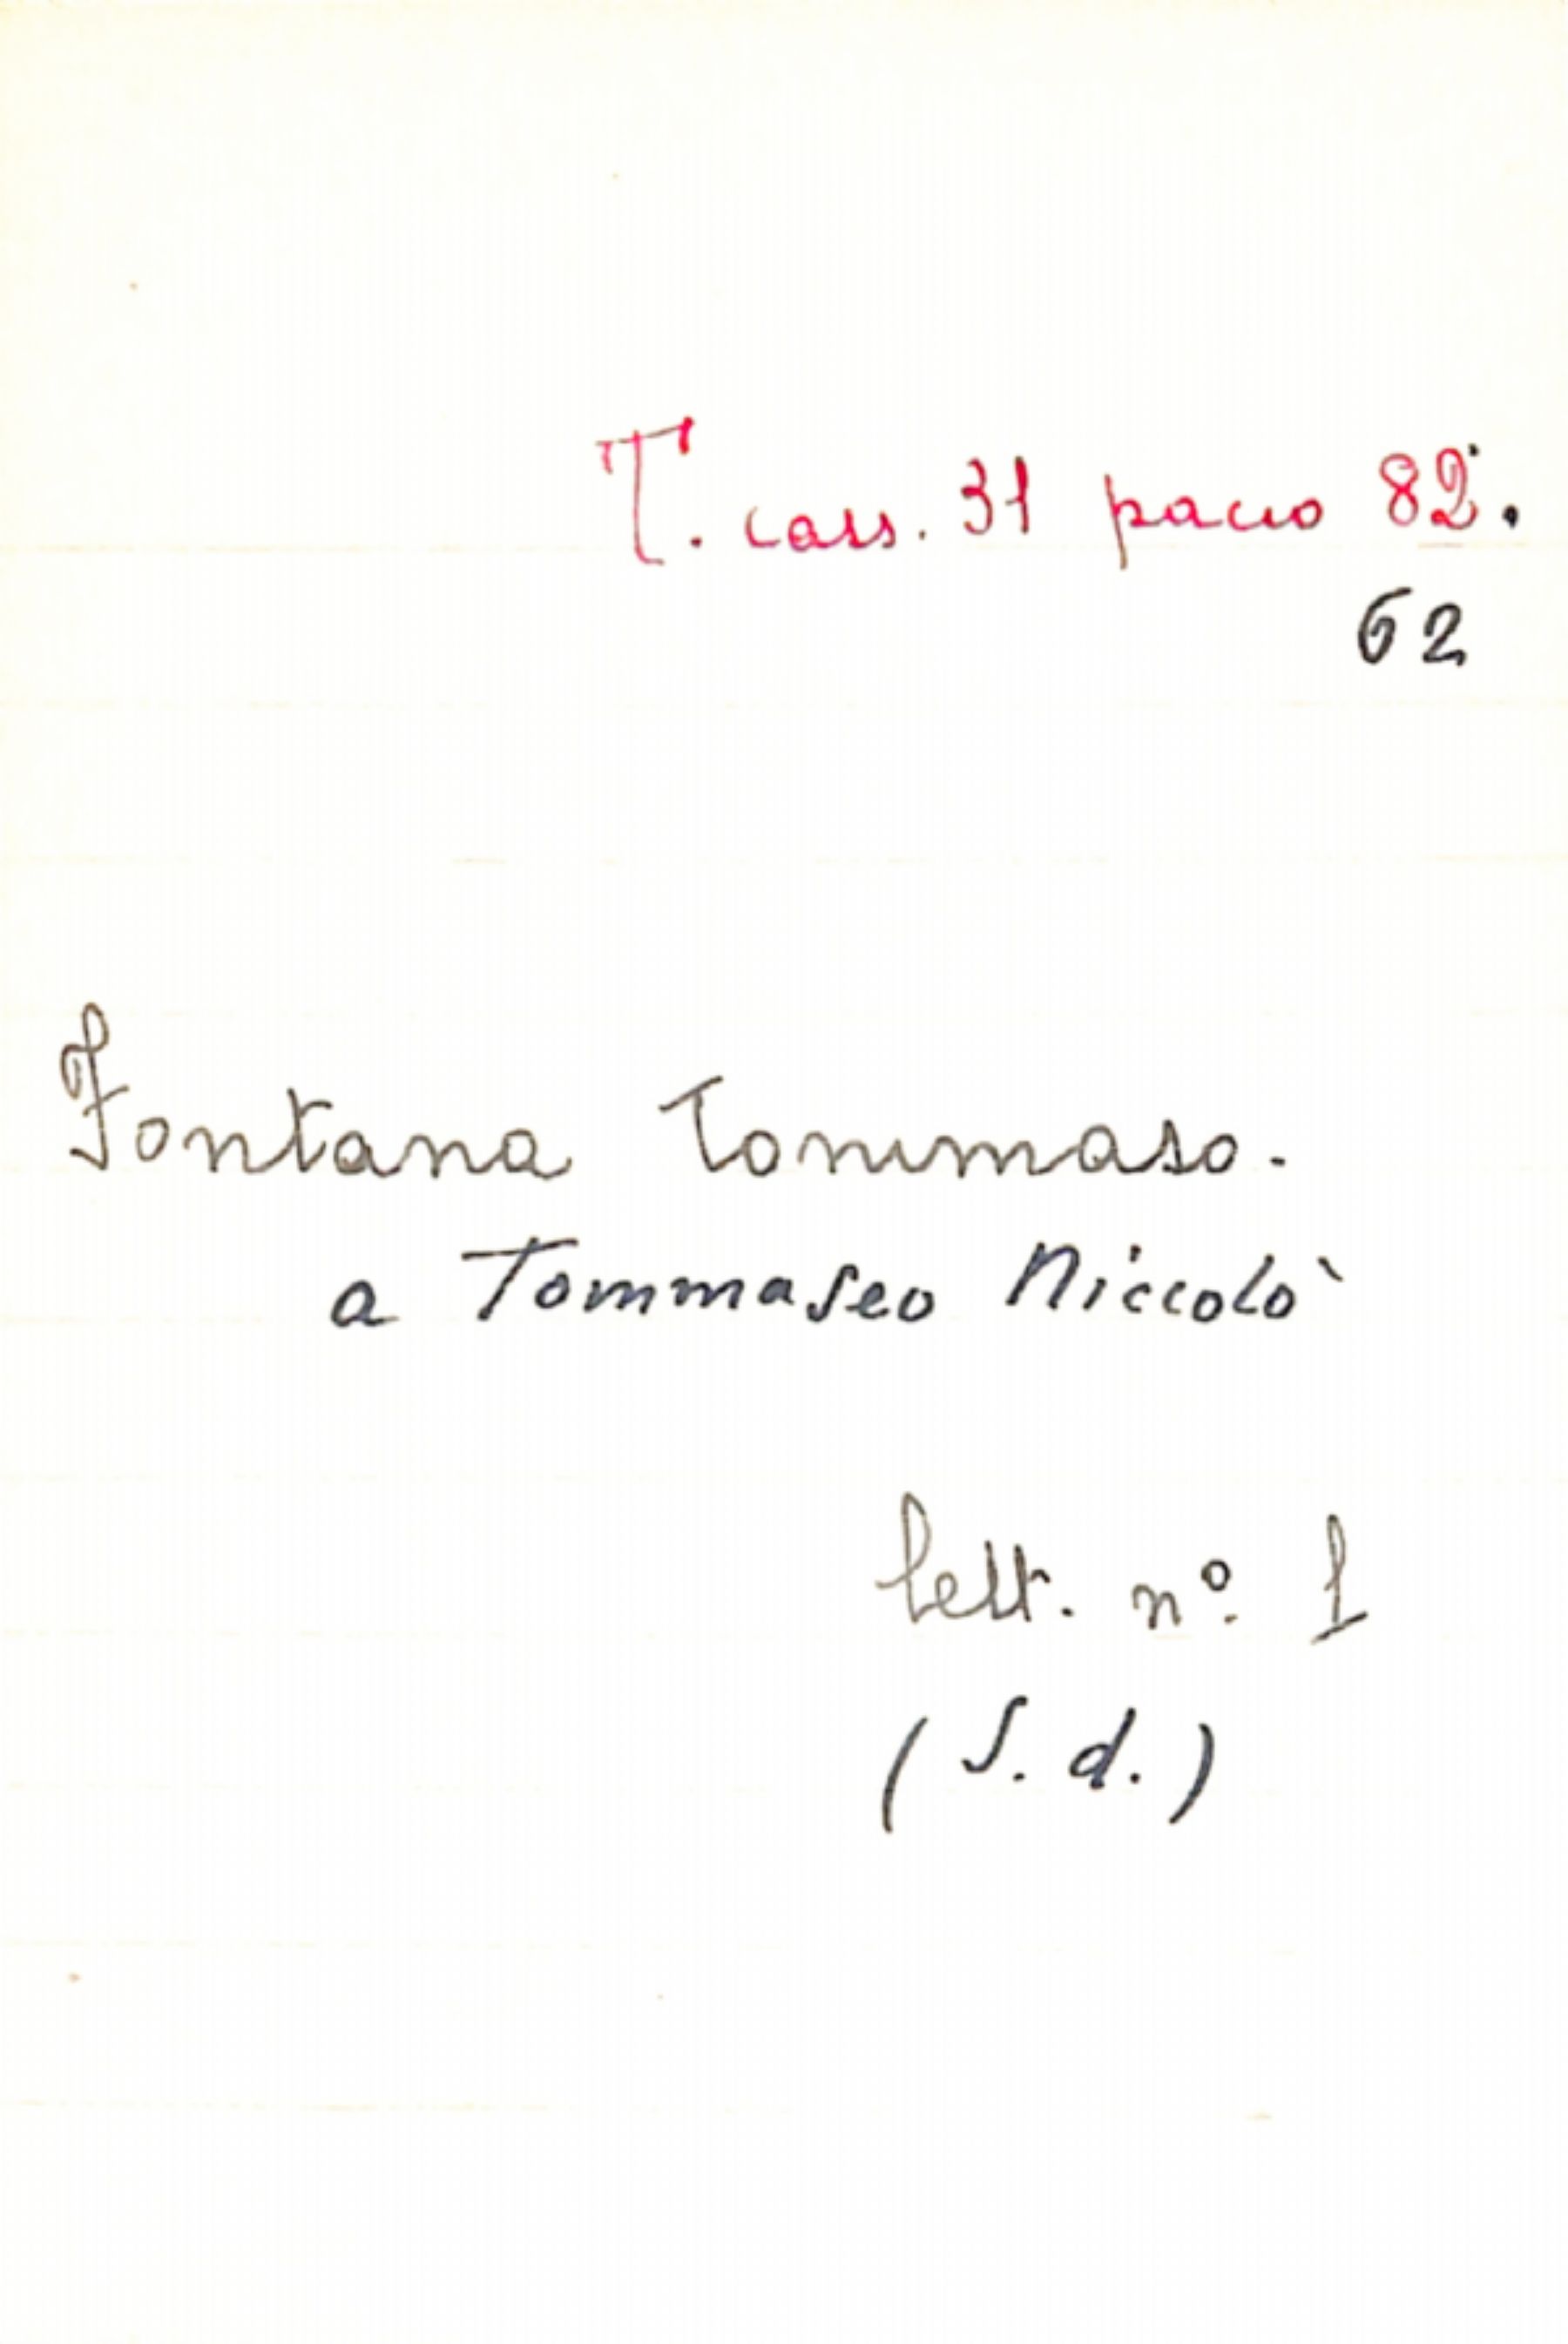 T. cass. 31 pacco 82.
62
Fontana Tommaso.
a Tommaseo Niccolò
lett. nº 1
(S. d.)